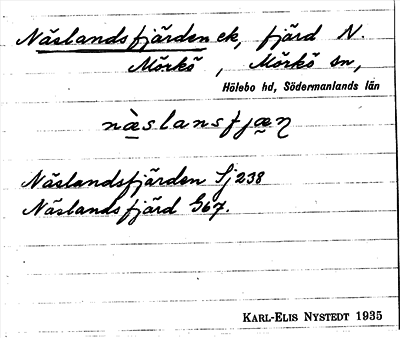 Näslandsfjärden ek, fjärd N.
Mörkö, Mörkö sn,
Hölebo hd, Södermanlands län
næ̀slansfjæṇ
Näslandsfjärden Sj 238
Näslandsfjärd G67.
KARL-ELIS NYSTEDT 1935